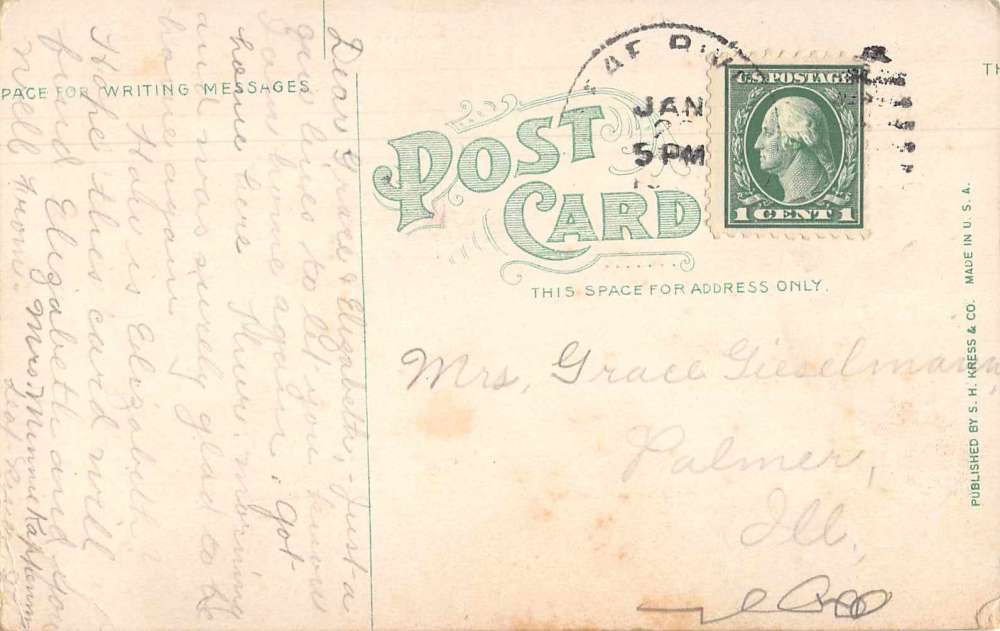 PACE FOR WRITING MESSAGES
POST CARD
THIS SPACE FOR ADDRESS ONLY.
JAN
5 PM
U.S. POSTAGE
1 CENT 1
TH
Mrs. Grace Gieselmann,
Palmer,
Ill.
PUBLISHED BY S. H. KRESS & CO. MADE IN U.S.A.
Dear Grace & Elizabeth, - Just a
few lines to let you know
I am home again. Got
home here Thurs. morning
and was surely glad to be
home again.
How is Elizabeth?
Hope this card will
find Elizabeth and you
well. From
Mrs. Minnie